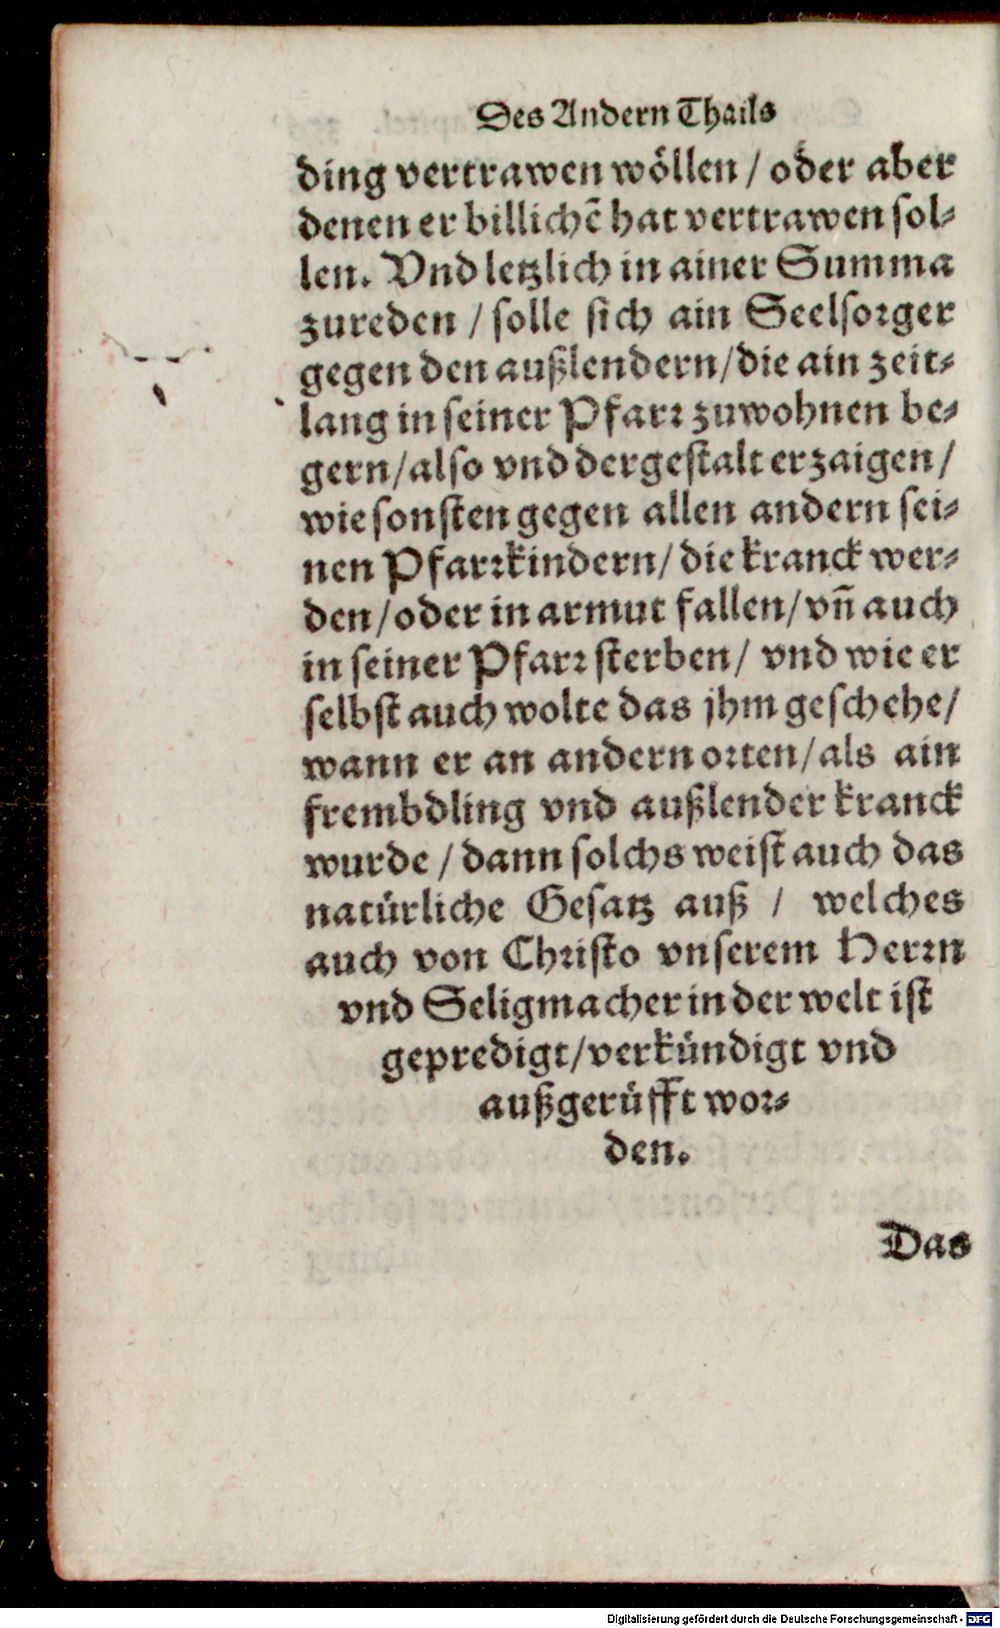 Des Andern Thails
ding vertrawen wöllen / oder aber
denen er billichē hat vertrawen sol⸗
len. Vnd letzlich in ainer Summa
zureden / solle sich ain Seelsorger
gegen den außlendern/die ain zeit⸗
lang in seiner Pfarr zuwohnen be⸗
gern/also vnd dergestalt erzaigen/
wie sonsten gegen allen andern sei⸗
nen Pfarrkindern/ die kranck wer⸗
den/oder in armut fallen/vñ auch
in seiner Pfarr sterben/ vnd wie er
selbst auch wolte das jhm geschehe/
wann er an andern orten/als ain
frembdling vnd außlender kranck
wurde / dann solchs weist auch das
natürliche Gesatz auß / welches
auch von Christo vnserem Herrn
vnd Seligmacher in der welt ist
gepredigt/verkündigt vnd
außgerüfft wor⸗
den.
Das
Digitalisierung gefördert durch die Deutsche Forschungsgemeinschaft - DFG